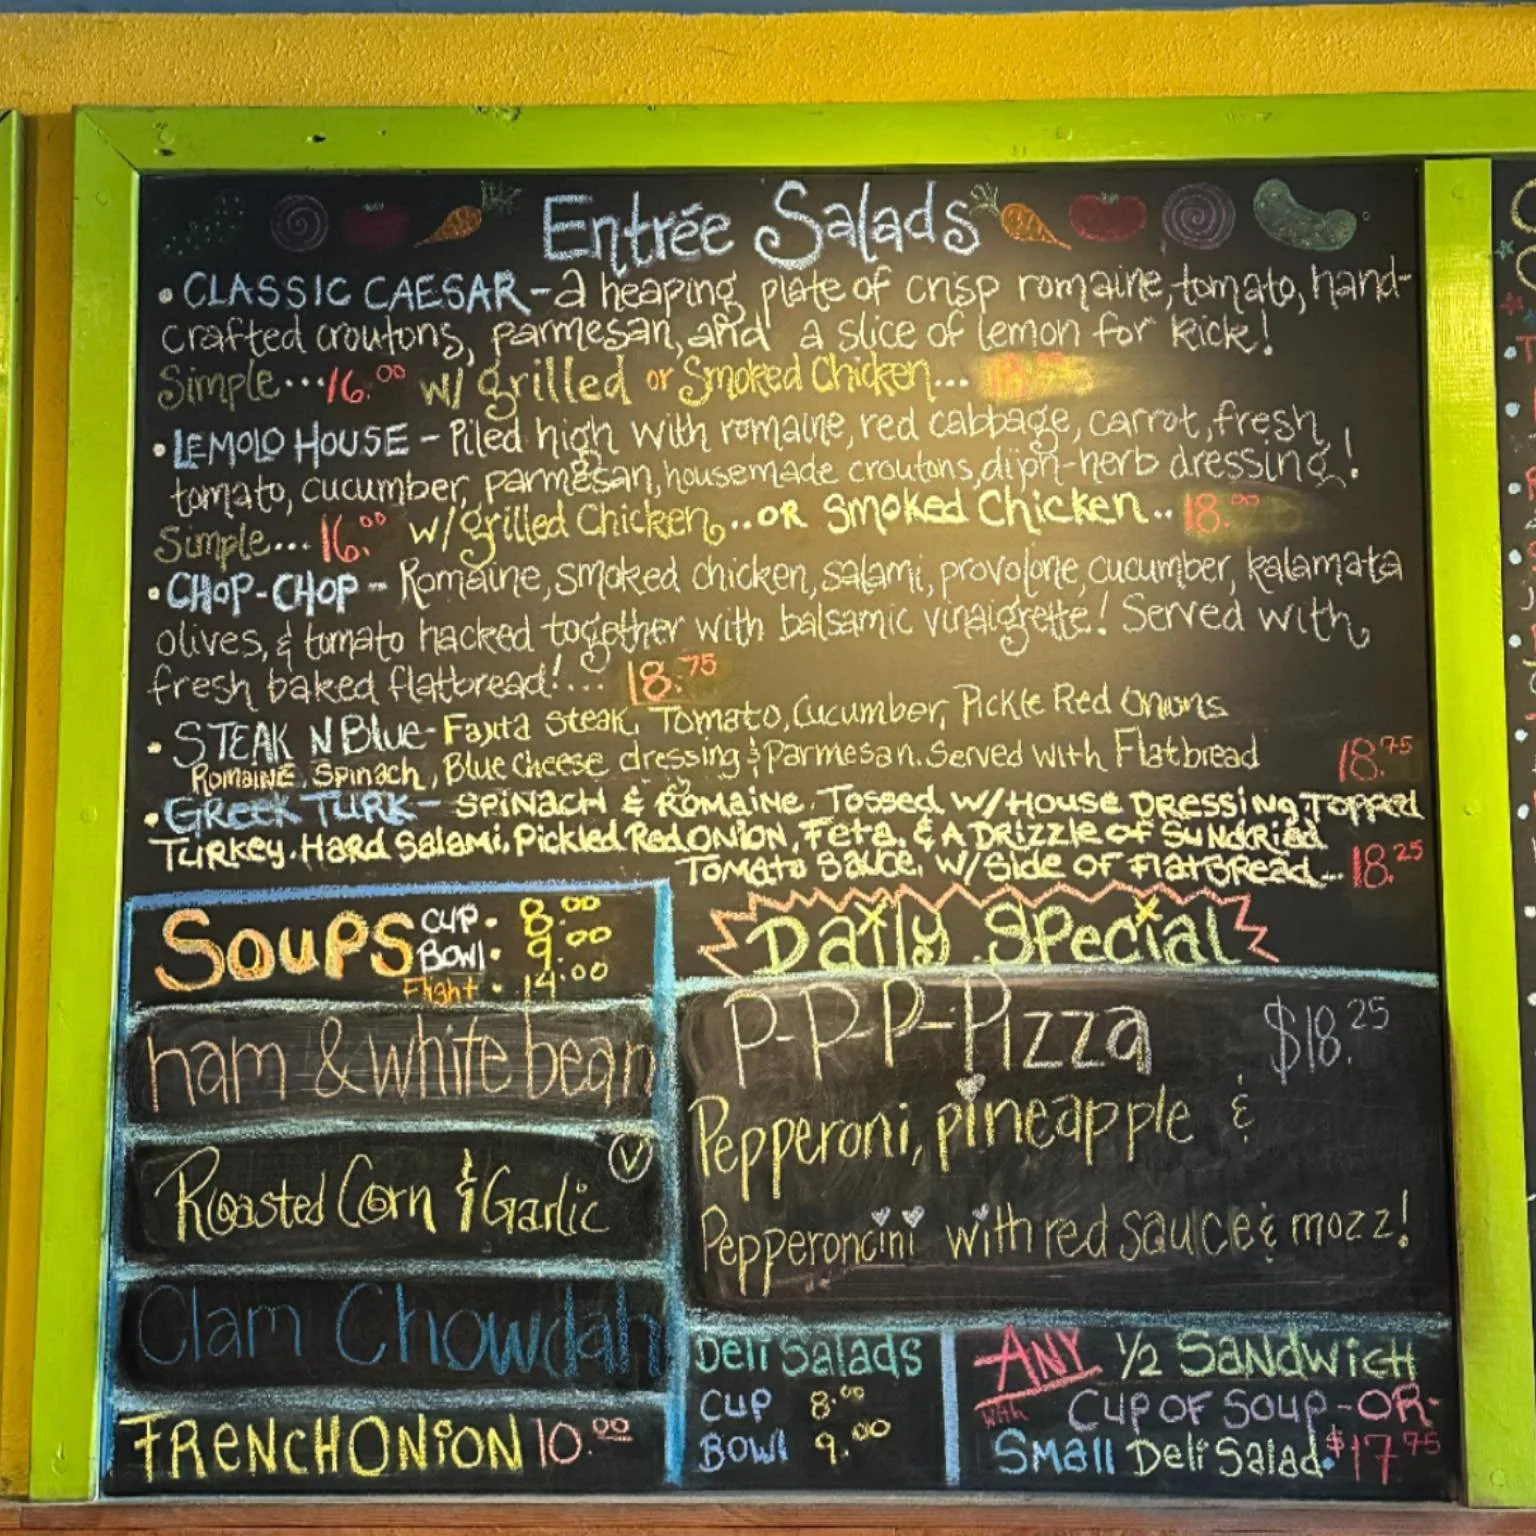 Entrée Salads
• CLASSIC CAESAR - a heaping plate of crisp romaine, tomato, hand-
crafted croutons, parmesan, and a slice of lemon for kick!
Simple...16.00 w/ grilled or Smoked Chicken...
• LEMOLO HOUSE - Piled high with romaine, red cabbage, carrot, fresh
tomato, cucumber, parmesan, housemade croutons, dijon-herb dressing!
Simple...16.00 w/grilled Chicken...OR Smoked Chicken..18.00
• CHOP-CHOP - Romaine, smoked chicken, salami, provolone, cucumber, kalamata
olives, & tomato hacked together with balsamic vinaigrette! Served with
fresh baked flatbread!... 18.75
• STEAK N Blue - Fajita Steak, Tomato, Cucumber, Pickle Red Onions
Romaine, Spinach, Blue Cheese dressing & Parmesan. Served with Flatbread 18.75
• Greek Turk - Spinach & Romaine, Tossed w/House Dressing, Topped
Turkey, Hard Salami, Pickled Red Onion, Feta, & A Drizzle of Sundried
Tomato Sauce, w/Side of Flatbread... 18.25
Soups
Cup. 8.00
Bowl. 9.00
Flight. 14.00
ham & white bean
Roasted Corn & Garlic V
Clam Chowdah
French Onion 10.00
Daily Special
P-P-P-Pizza $18.25
Pepperoni, pineapple &
Pepperoncini with red sauce & mozz!
Deli Salads
Cup 8.00
Bowl 9.00
ANY 1/2 Sandwich
with Cup of Soup -OR-
Small Deli Salad. $17.75